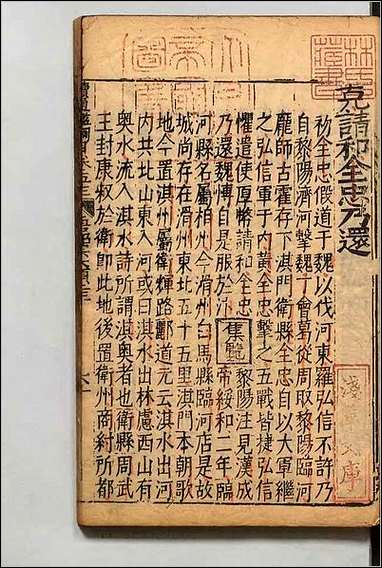 克請和全忠乃還
初全忠假道于魏以伐河東羅弘信不許乃
自黎陽濟河擊魏丁會葛從周取黎陽臨河
龐師古霍存下淇門衛縣全忠自以大軍繼
之弘信軍于內黃全忠擊之五戰皆捷弘信
懼遣使厚幣請和全忠
乃還魏博自是服於汴
集覽
黎陽注見漢成
帝綏和二年臨
河縣名屬相州今滑州白馬縣臨河店是故
城尚存在滑州東北五十五里淇門本朝歌
地今置淇州屬衛輝路酈道元云淇水出河
內共北山東入河或曰淇水出林慮西山有
奧水流入淇水詩所謂淇奧者也衛縣周武
王封康叔於衛即此地後置衛州商紂所都
林氏藏書
淺草文庫